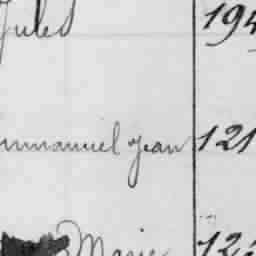 Jules 194
mmanuel Jean 121
Marie 12